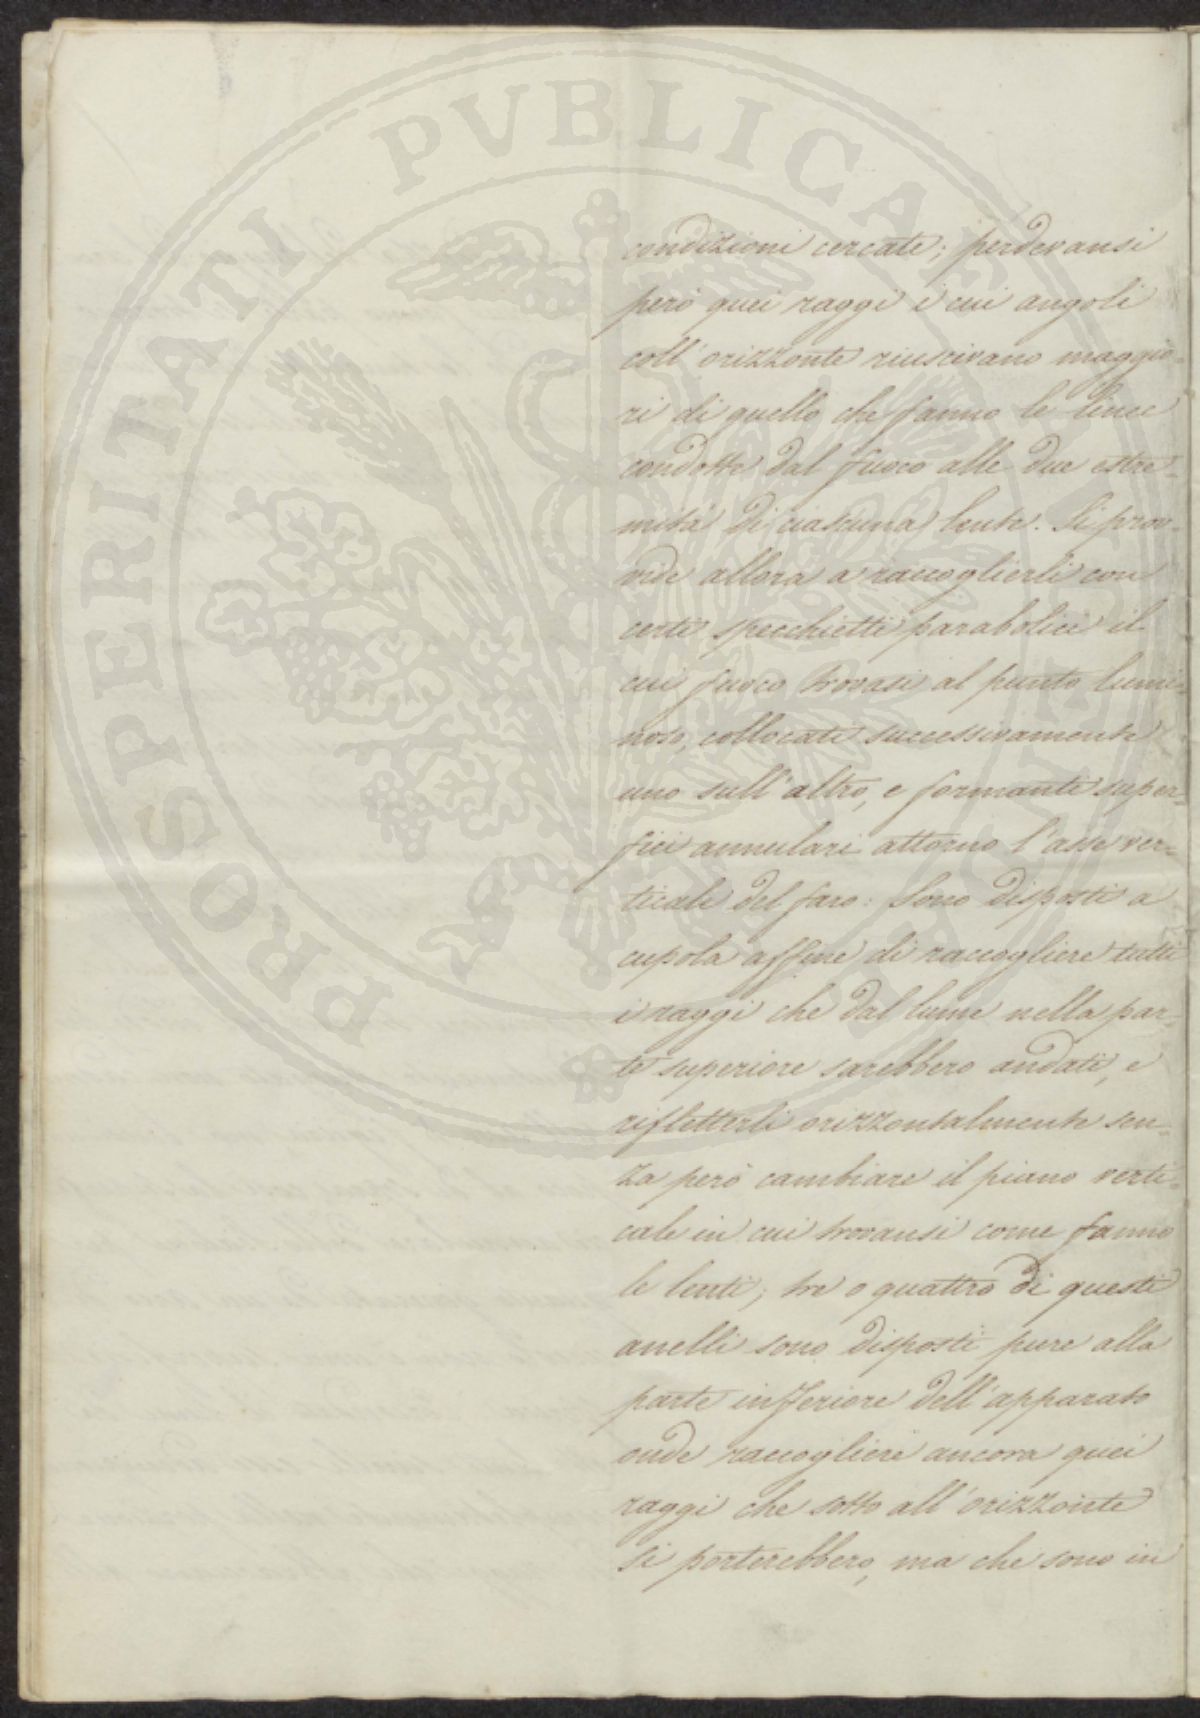 PROSPERITATI PUBLICAE AUGENDAE
condizioni cercate; perdevansi
però quei raggi i cui angoli
coll'orizzonte riuscivano maggio-
ri di quello che fanno le linee
condotte dal fuoco alle due estre-
mità di ciascuna lente. Si prov-
vide allora a raccoglierli con
certi specchietti parabolici il
cui fuoco trovasi al punto lumi-
noso, collocati successivamente
uno sull'altro, e formanti super-
fici annulari attorno l'asse ver-
ticale del faro: Sono disposti a
cupola affine di raccogliere tutti
i raggi che dal lume nella par-
te superiore sarebbero andati, e
rifletterli orizzontalmente sen-
za però cambiare il piano verti-
cale in cui trovansi come fanno
le lenti; tre o quattro di questi
anelli sono disposti pure alla
parte inferiore dell'apparato
onde raccogliere ancora quei
raggi che sotto all'orizzonte
si porterebbero, ma che sono in